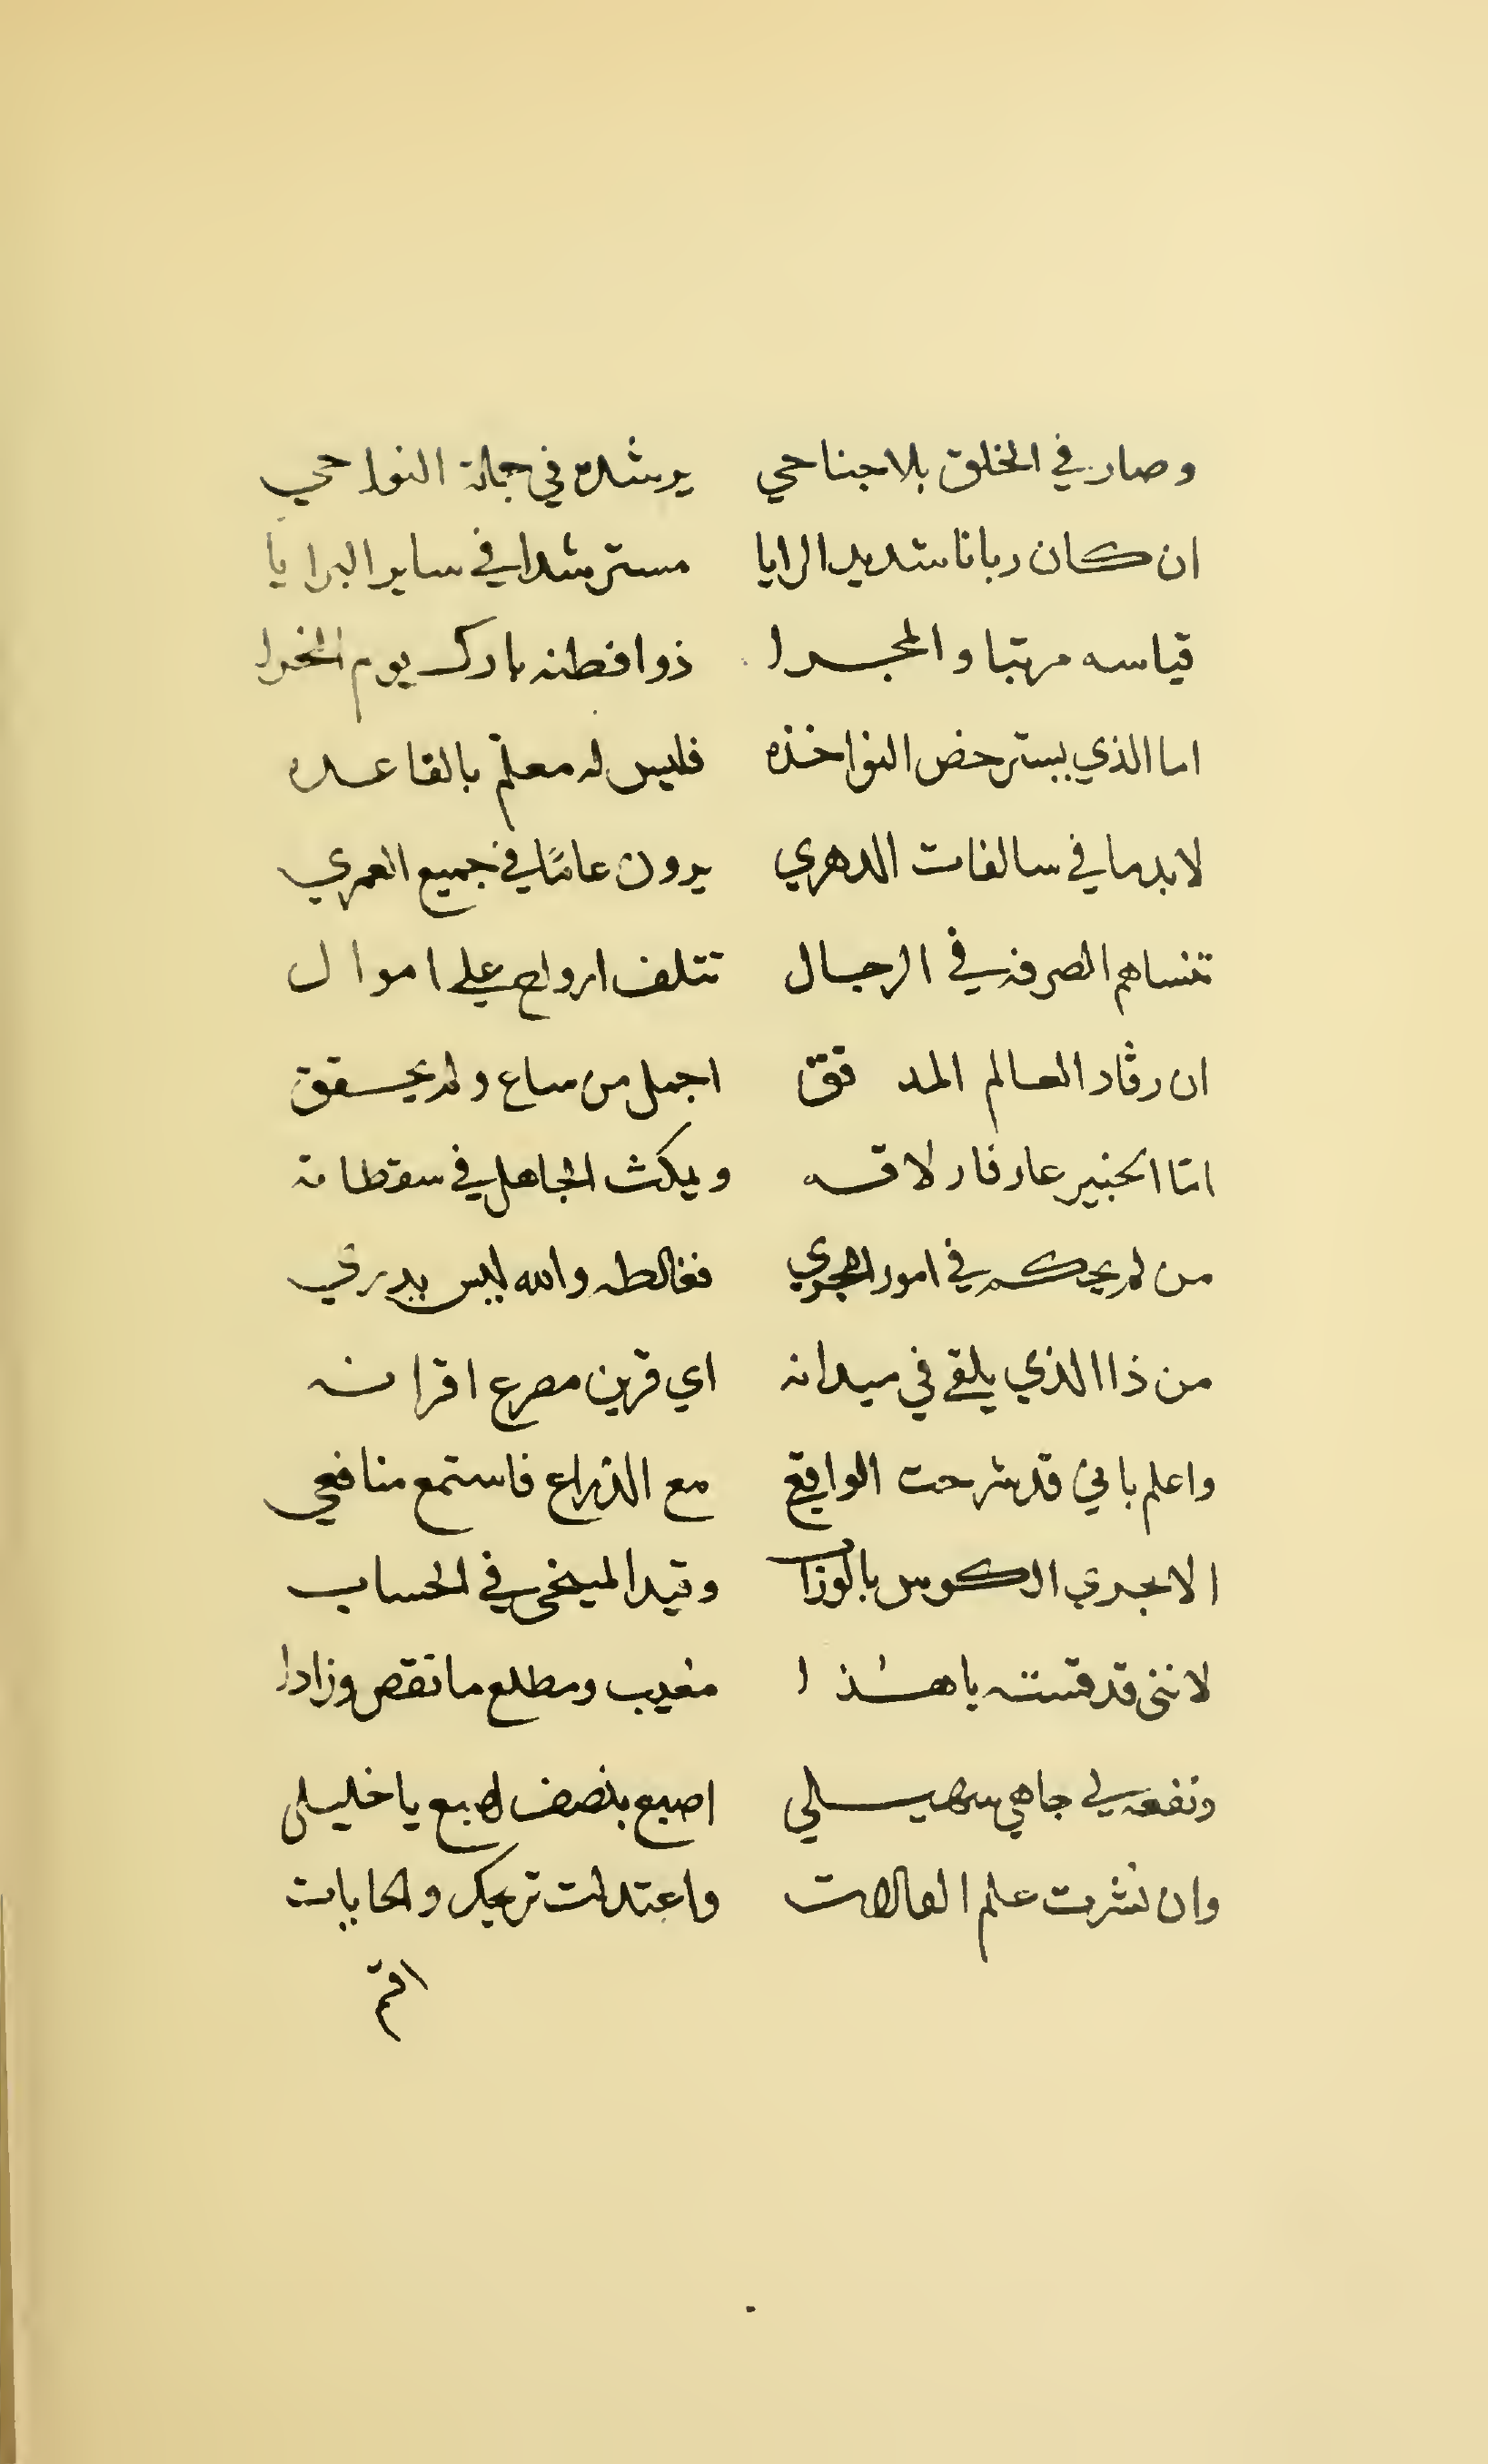 وصار في الخلق بلا جناحي يرشده في جملة النواحي
ان كان ربانا شديد الرايا مسترشدا في ساير البرايا
قياسه مرتبا والمجرا ذوا فطنه يوم
اما الذي يسترخص النواخذه فليس له معلم بالقاعده
لابد ما في سالفات الدهري يرون عامًا في جميع العمري
تنساهم الصرفه في الرجال تتلف ارواح علي اموال
ان رقاد العالم المدقق اجمل من ساع ولم يحقق
امّا الخبير عارفا ولا قه ويمكث الجاهل في سقطاته
من لم يحكم في امور المجري فغالطه والله ليس يدري
من ذا الذي يلقي في ميدانه اي قرين مصرع اقرانه
واعلم باني قد شرحت الواقع مع الذراع فاستمع منافعي
الا بجري الكوس في الحساب
لانني قد قسته يا هذا مغيب ومطلع ما نقص وزادا
ونفعه لي جاهي سهيلي اصبع بنصف اصبع يا خليلي
وان نشرت علم واعتدلت ترحيك
اقم